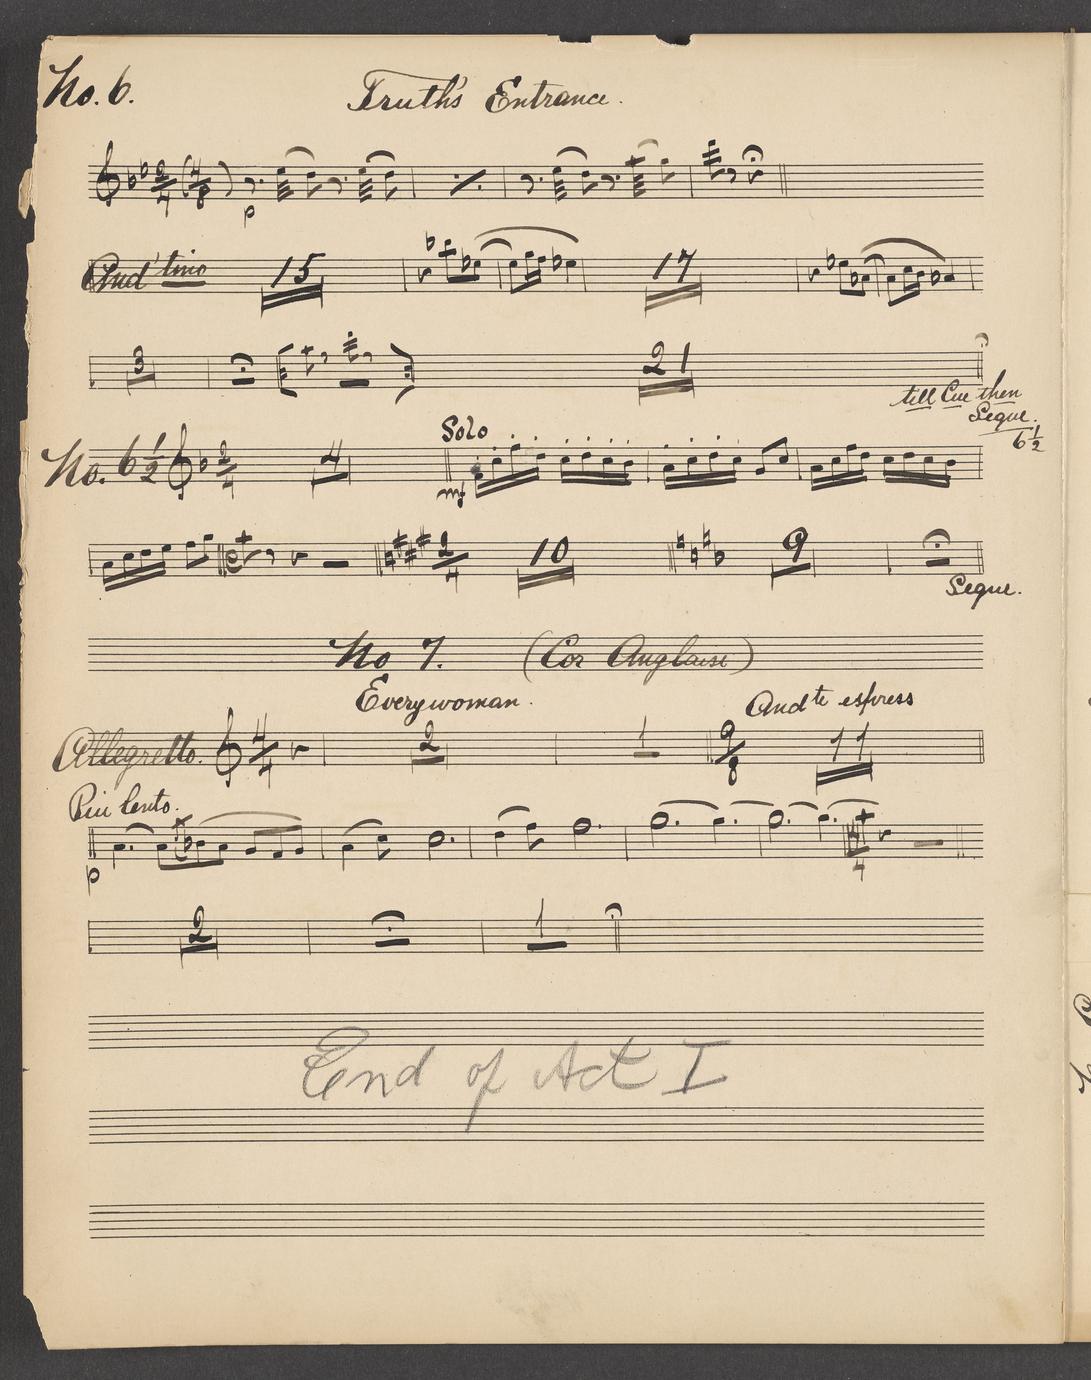 No. 6. Truth's Entrance.
p
And'tino 15 17
3 21
till Cue then
Segue.
6½
No. 6½ 2/4 4 Solo
mf
2/4 10 9
Segue.
No 7. (Cor Anglaise)
Everywoman. Andte espress
Allegretto. 4/4 2 1 9/8 11
Piu lento.
p
2 1
End of Act I